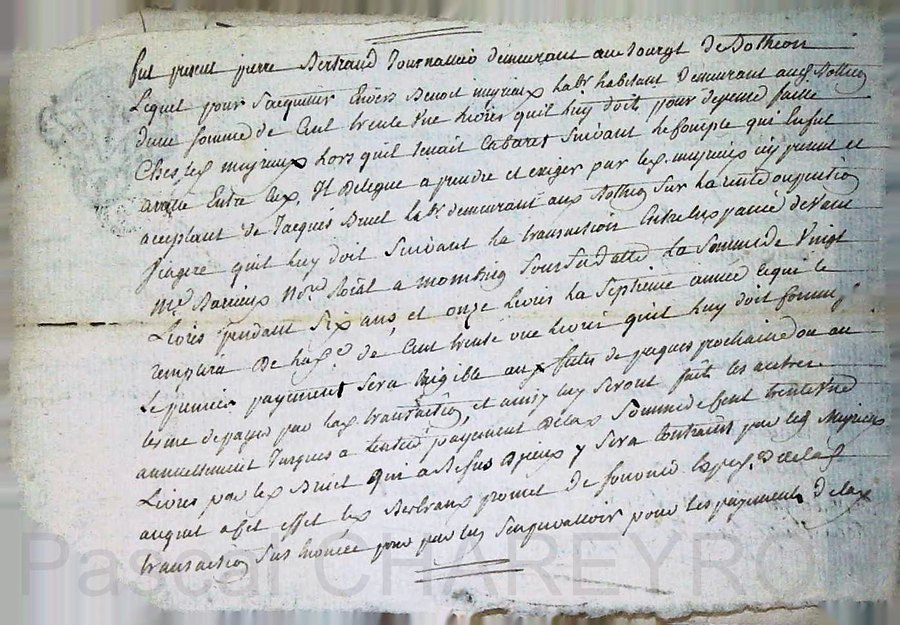 fut present pierre Bertrand Journallier demeurant au bourgt de Bothéon
Lequel pour Saquitter Envers Benoit meynieux labr habitant demeurant aud Bothéon
dune somme de Cent trente une livres quil luy doit pour depense faitte
Chés led meynieux lors quil tenait Cabaret Suivant le Compte qui Enfut
arretté Entre Eux, Il delegue a prendre et exiger par led. meynieux icy present et
acceptant de Jacques Bruel labr demeurant aud Bothéon Sur la rente ou pention
Viagere quil luy doit Suivant la transaction Entre Eux passée devant
Me Barrieux Nore Roial a Sous Sa datte La Somme de Vingt
Livres pendant Six ans, et onze livres la Septieme année Ce qui le
remplira De lad. de Cent trente une livres quil luy doit
Le premier payement Sera Exigible aux fetes de paques prochaine ou au
terme de payer par lad transaction, et ainsy Seront fait les autres
annuellement Jusques a Lentier payement de lad Somme de Cent trente une
Livres par led Bruel Qui a defaut y Sera Contraint par led Meynieux
auquel a Cet effet led Bertrand promet de fournir de lad
transaction Sus Enoncée pour par luy Sen prevalloir pour les payements de lad
Pascal CHAREYRON